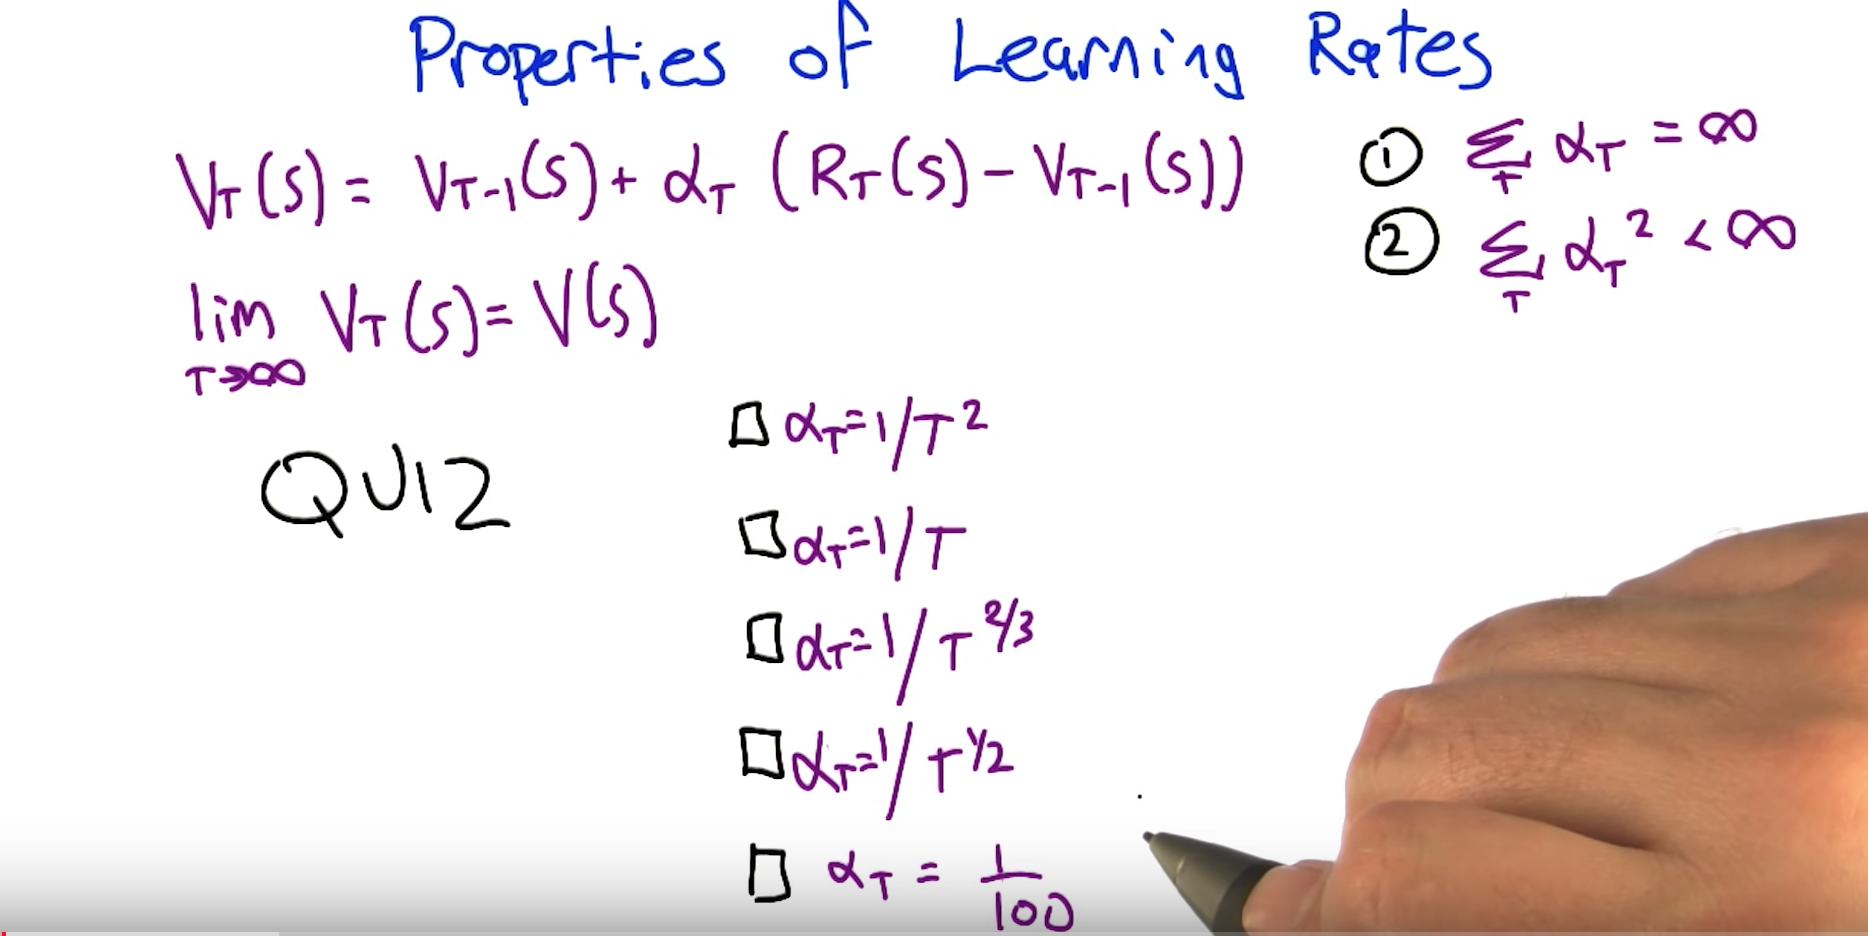 Properties of Learning Rates
V_T(s) = V_{T-1}(s) + α_T (R_T(s) - V_{T-1}(s))
① Σ_T α_T = ∞
② Σ_T α_T² < ∞
lim_{T→∞} V_T(s) = V(s)
QUIZ
□ α_T = 1/T²
□ α_T = 1/T
□ α_T = 1/T^{2/3}
□ α_T = 1/T^{1/2}
□ α_T = 1/100